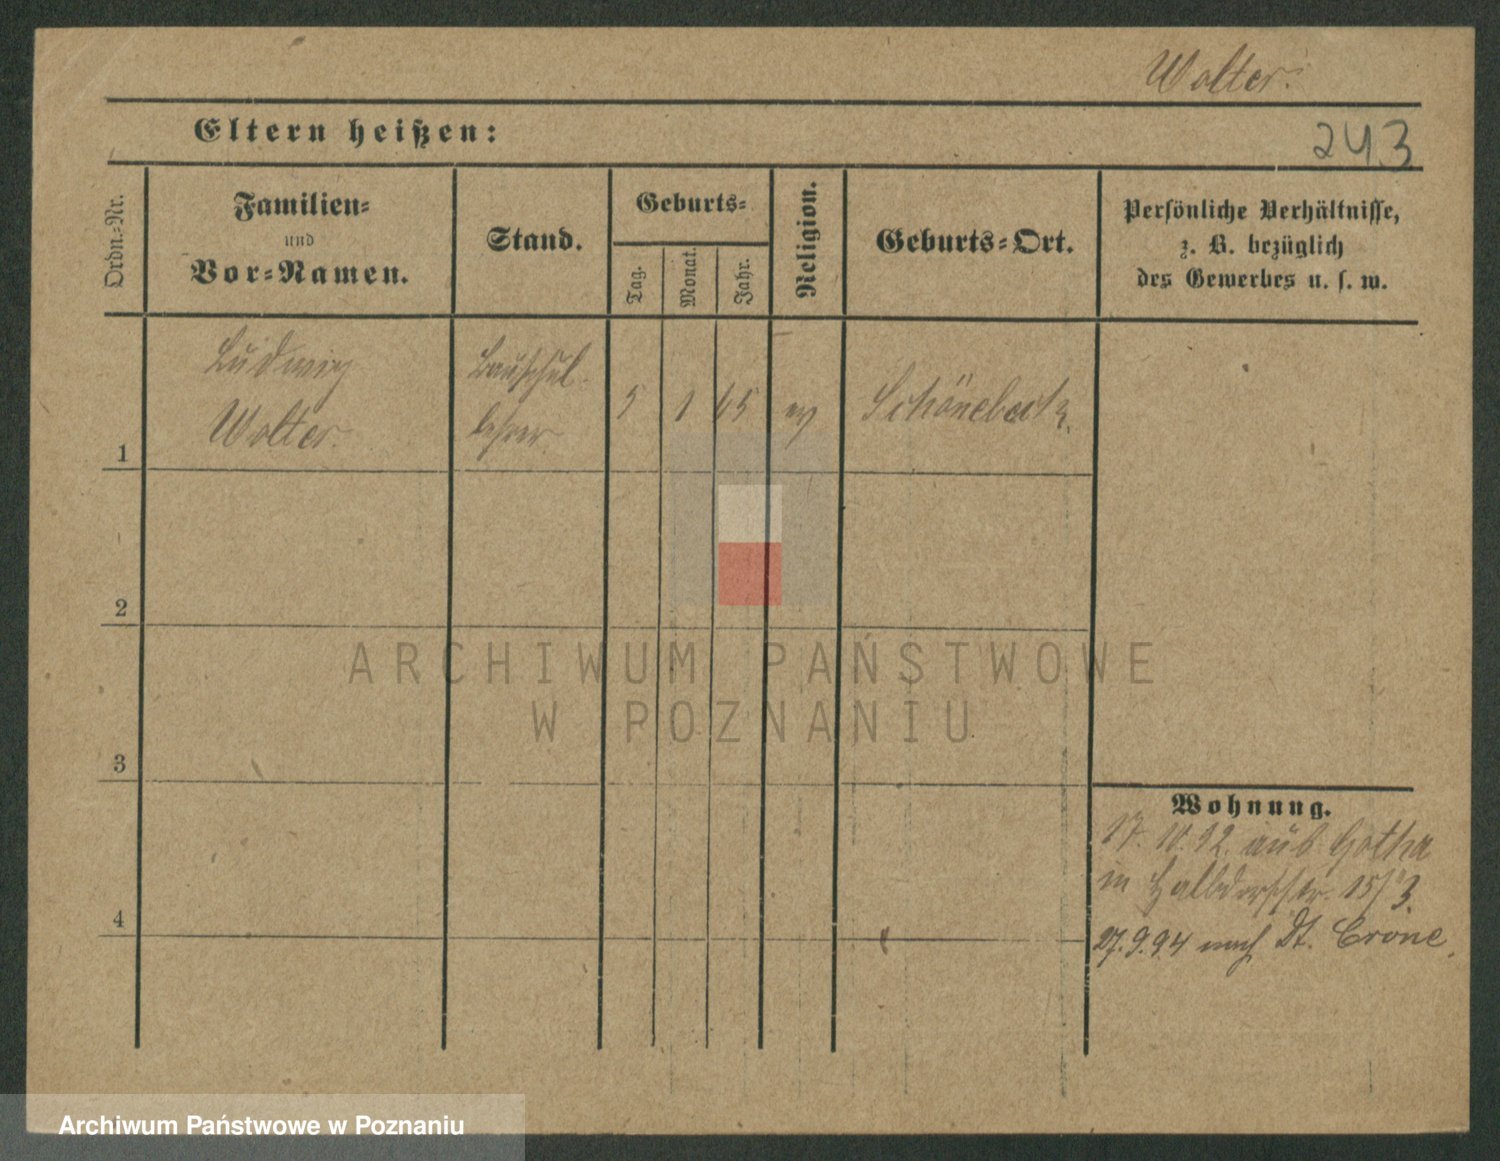 Wolter.
Eltern heißen:
243
Ordn.-Nr.
Familien-
und
Vor-Namen.
Stand.
Geburts-
Tag.
Monat.
Jahr.
Religion.
Geburts-Ort.
Persönliche Verhältnisse,
z. B. bezüglich
des Gewerbes u. s. w.
1
Ludwig
Wolter.
Bauschul
lehrer
5 1 65 ev Schönebeck
2
3
4
Wohnung.
17. 10. 92. aus Gotha
in 15/3.
27. 9. 94 nach Dt. Crone.
ARCHIWUM PAŃSTWOWE
W POZNANIU
Archiwum Państwowe w Poznaniu